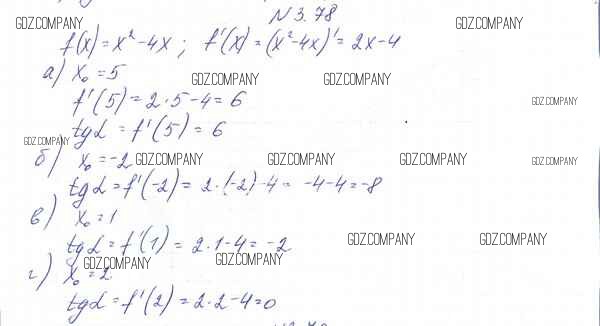 N 3.78
GDZ.COMPANY GDZ.COMPANY
f(x) = x² - 4x ; f'(x) = (x² - 4x)' = 2x - 4
а) x₀ = 5 GDZ.COMPANY GDZ.COMPANY
f'(5) = 2·5 - 4 = 6 GDZ.COMPANY
tg α = f'(5) = 6
GDZ.COMPANY
б) x₀ = -2 GDZ.COMPANY GDZ.COMPANY GDZ.COMPANY GDZ.COMPANY
tg α = f'(-2) = 2·(-2) - 4 = -4 - 4 = -8
в) x₀ = 1
tg α = f'(1) = 2·1 - 4 = -2 GDZ.COMPANY GDZ.COMPANY
г) x₀ = 2 GDZ.COMPANY GDZ.COMPANY
tg α = f'(2) = 2·2 - 4 = 0